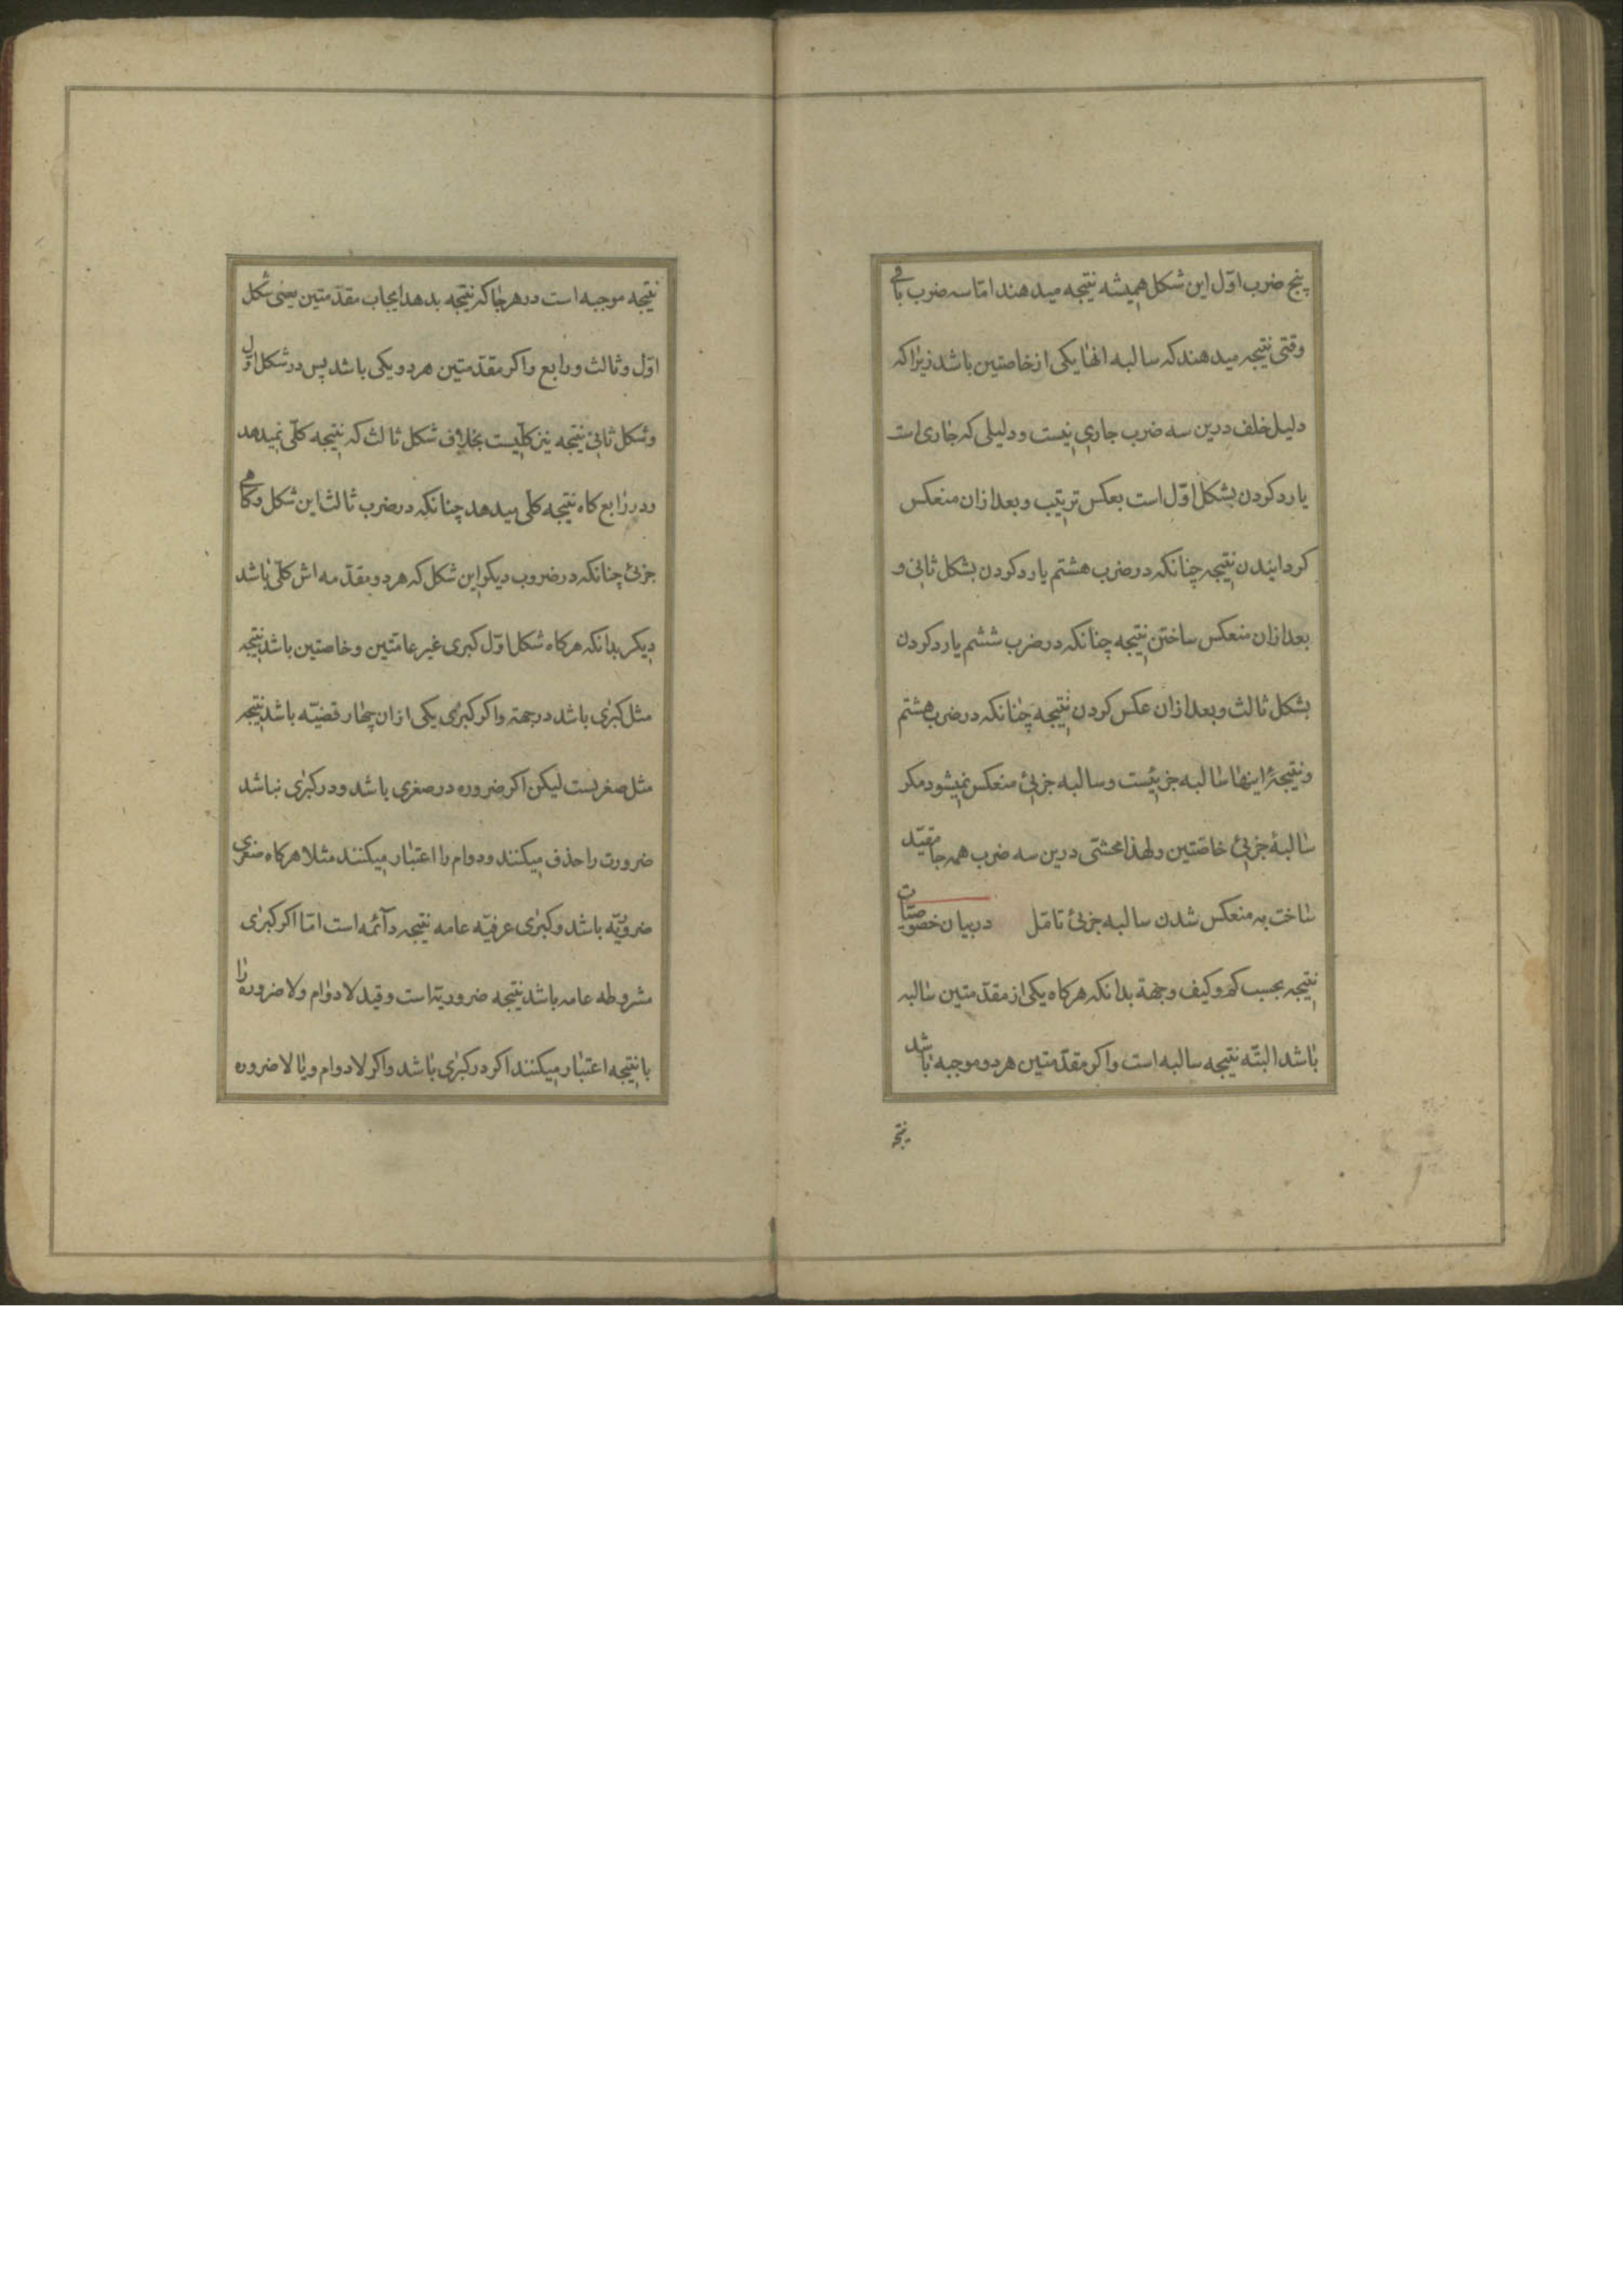 پنج ضرب اوّل این شکل همیشه نتیجه میدهند امّا سه ضرب باقی
وقتی نتیجه میدهند که سالبه انها یکی از خاصتین باشد زیرا که
دلیل خلف درین سه ضرب جاری نیست و دلیلی که جاری است
یا رد کردن بشکل اوّل است بعکس ترتیب و بعد ازان منعکس
کردانیدن نتیجه چنانکه در ضرب هشتم یا رد کردن بشکل ثانی و
بعد ازان منعکس ساختن نتیجه چنانکه در ضرب ششم یا رد کردن
بشکل ثالث و بعد ازان عکس کردن نتیجه چنانکه در ضرب هشتم
و نتیجهٔ اینها سالبه جزئیست و سالبه جزئی منعکس نمیشود مکر
سالبهٔ جزئی خاصّتین و لهذا محشّی درین سه ضرب همه جا مقیّد
ساخت به منعکس شدن سالبه جزئی تامّل در بیان خصوصیّات
نتیجه بحسب کم و کیف و جهة بدانکه هرکاه یکی از مقدّمتین سالبه
باشد البتّه نتیجه سالبه است و اکر مقدّمتین هر دو موجبه باشد
نتیجه
نتیجه موجبه است در هر جا که نتیجه بدهد ایجاب مقدّمتین یعنی شکل
اوّل و ثالث و رابع و اکر مقدّمتین هر دو یکی باشد پس در شکل اوّل
و شکل ثانی نتیجه نیز کلّیست بخلاف شکل ثالث که نتیجه کلّی نمیدهد
و در رابع کاه نتیجه کلّی میدهد چنانکه در ضرب ثالث این شکل و کاهی
جزئی چنانکه در ضروب دیکر این شکل که هر دو مقدّمه اش کلّی باشد
دیکر بدانکه هرکاه شکل اوّل کبری غیر عامّتین و خاصتین باشد نتیجه
مثل کبری باشد در جهة و اکر کبری یکی ازان چهار قضیّه باشد نتیجه
مثل صغریست لیکن اکر ضروره در صغری باشد و در کبری نباشد
ضرورت را حذف میکنند و دوام را اعتبار میکنند مثلا هرکاه صغری
ضروریّه باشد و کبری عرفیّه عامه نتیجه دآئمه است امّا اکر کبری
مشروطه عامه باشد نتیجه ضروریّه است و قید لا دوام و لا ضروره را
با نتیجه اعتبار میکنند اکر در کبری باشد و اکر لا دوام و یا لا ضروره